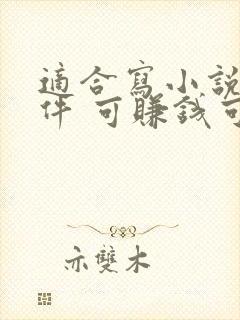 適合寫小說
件 可賺錢可
亦雙木